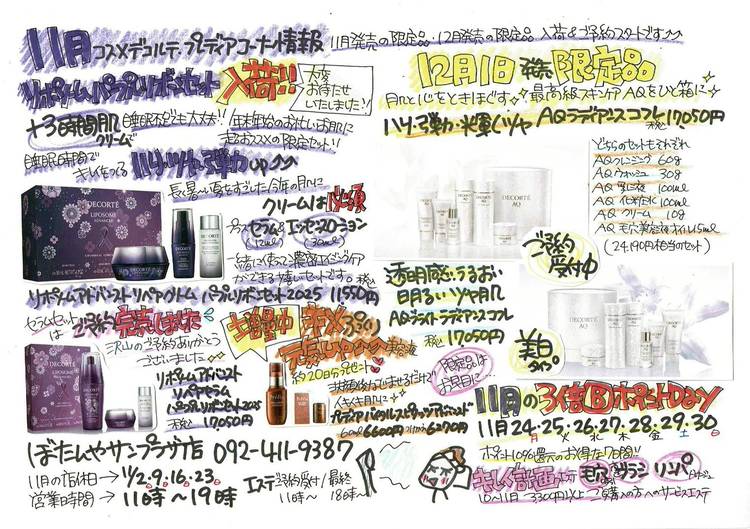 11月コスメデコルテ プレディアコーナー情報
11月発売の限定品・12月発売の限定品 入荷&ご予約スタートです
リポソーム パープルリボンセット 入荷!!
大変
お待たせ
いたしました!!
+3時間肌 睡眠不足も大丈夫!!
クリームで
年末年始のお忙しいお肌に
超おススメの限定セット!!
睡眠時間で
キレイをつくる ハリ・ツヤ・弾力up
長〜い夏をすごした今年の肌に
クリームは必須
DECORTÉ
LIPOSOME
ADVANCED
プラスセラム&エッセンスローション
(12ml) (30ml)
一緒に使って濃密スペシャルケア
ができる嬉しいセットです
リポソームアドバンスト リペアクリーム パープルリボンセット2025 税込11550円
セラムセット
は ご予約完売しました
沢山のご予約ありがとう
ございました
リポソームアドバスト
リペアセラム
パープルリボンセット2025
税込17050円
12月1日発売 限定品
肌と心をときほぐす 最高級スキンケア AQをひと箱に
ハリ・弾力・輝くツヤ AQラディアンスコフレ 税込17050円
どちらのセットもそれぞれ
AQクレンジング 60g
AQウォッシュ 30g
AQ乳液 100ml
AQ化粧水 100ml
AQクリーム 10g
AQ毛穴美容液オイル15ml
(24,190円相当のセット)
DECORTÉ
AQ
ご予約
受付中
透明感・うるおい
明るいツヤ肌
AQブライトラディアンスコフレ
税込17050円
DECORTÉ
AQ
美白
タイプ
増量中
約20日分プレゼント
60ml 6600円 6270円
限定品は
お早目に
11月の3倍Ⓑポイントday
11月24・25・26・27・28・29・30
月 火 水 木 金 土 日
ポイント10%還元のお得な7日間!!
キレイ計画 毛穴 ブラシ リンパ マッサージ
10〜11月 3300円以上ご購入の方へのサービスエステ
ぼたんやサンプラザ店 092-411-9387
11月の店休日→11/2.9.16.23.
営業時間→11時〜19時
エステ ご予約受付/最終
11時〜 18時〜